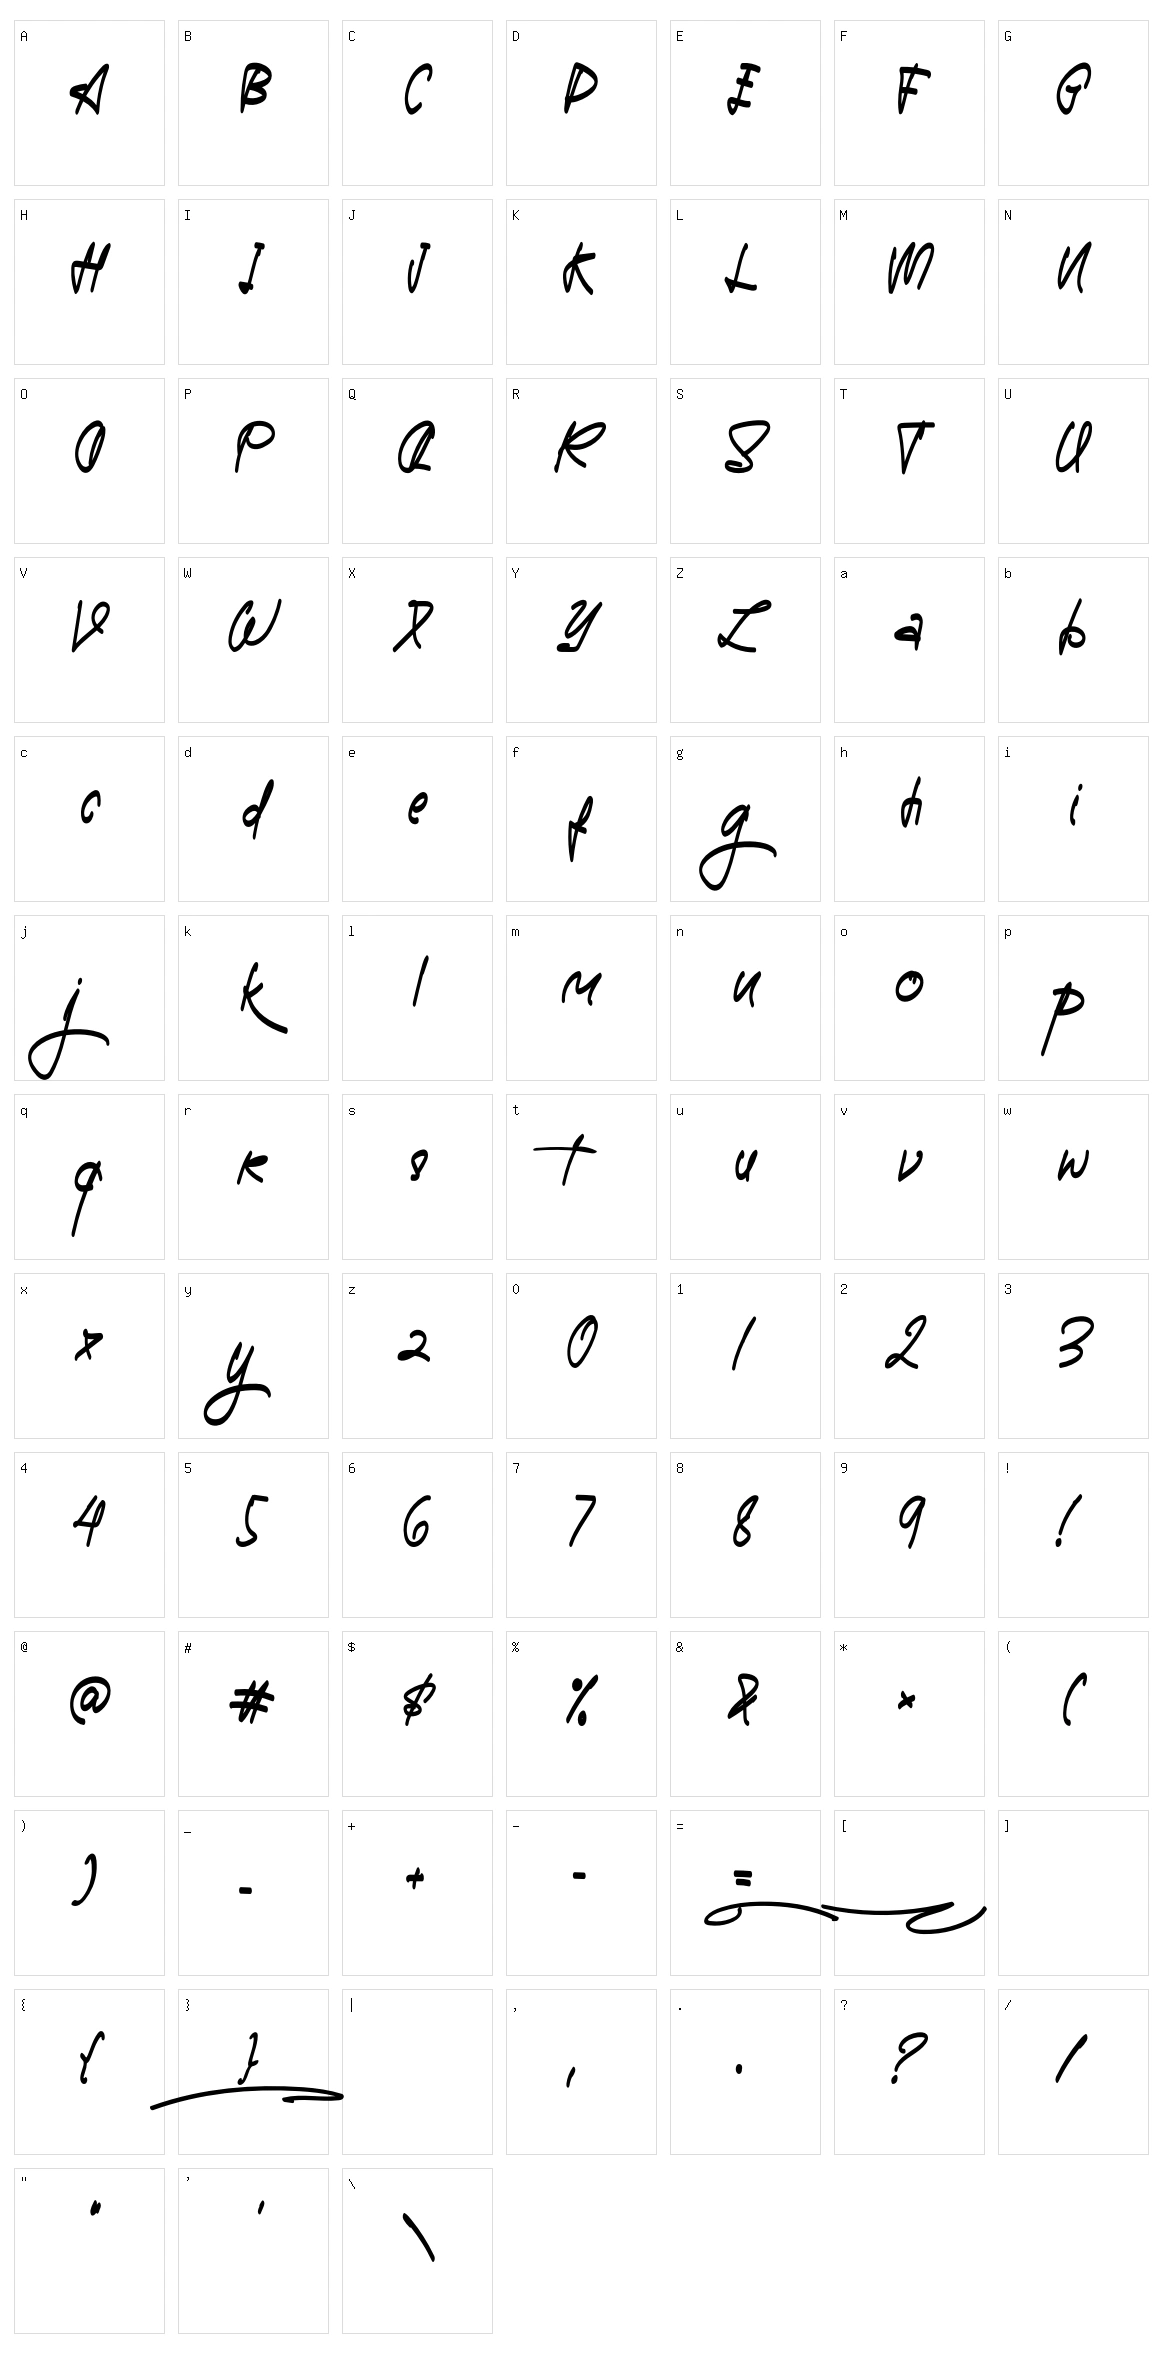 A B C D E F G
A B C D E F G
H I J K L M N
H I J K L M N
O P Q R S T U
O P Q R S T U
V W X Y Z a b
V W X Y Z a b
c d e f g h i
c d e f g h i
j k l m n o p
j k l m n o p
q r s t u v w
q r s t u v w
x y z 0 1 2 3
x y z 0 1 2 3
4 5 6 7 8 9 !
4 5 6 7 8 9 !
@ # $ % & * (
@ # $ % & * (
) _ + - = [ ]
) _ + - =
{ } | , . ? /
{ } , . ? /
" ' \
" ' \